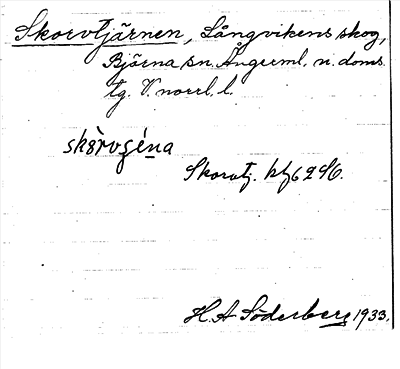 Skorvtjärnen, Långvikens skog,
Björna sn. Ångerml. n. doms.
tg. V. norrl. l.
Skorvtj. kbl 62 SO.
H. A Söderberg 1933.